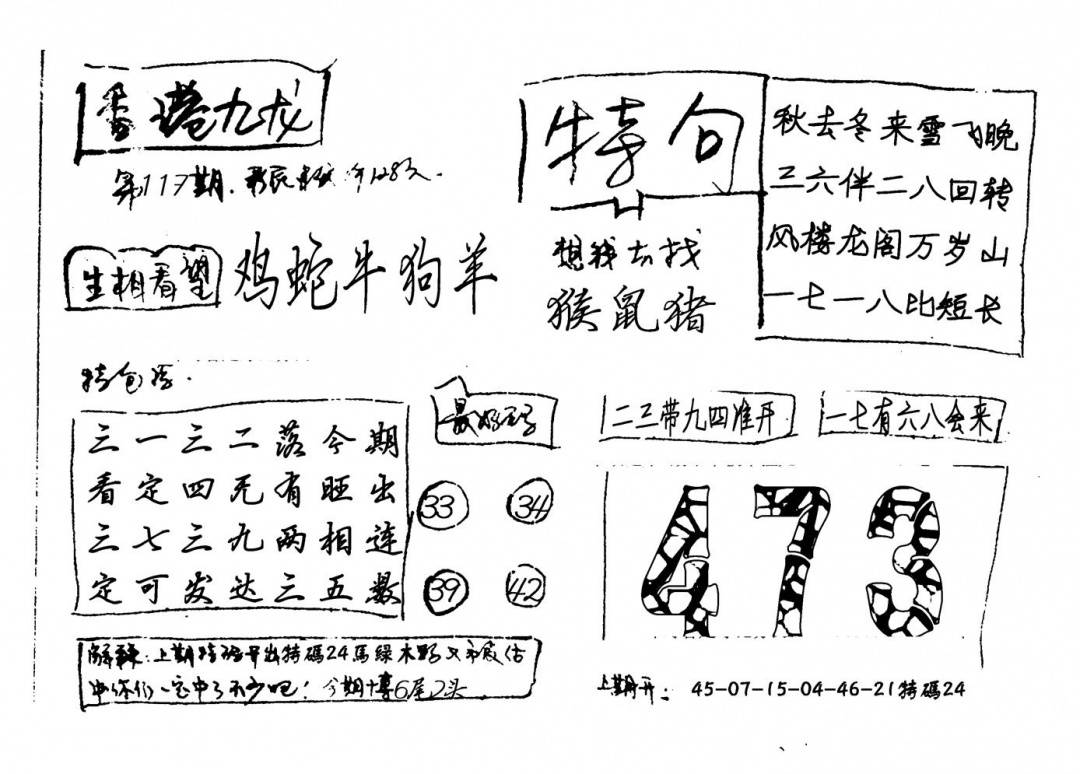 香港九龙
第117期.
特句
秋去冬来雪飞晚
三六伴二八回转
风楼龙阁万岁山
一七一八比短长
生相看望
鸡蛇牛狗羊
想我去找
猴鼠猪
特包
三一三二落今期
看定四无有旺出
三七三九两相连
定可发达三五数
最好
33
34
39
42
二三带九四准开
一七有六八会来
473
解释:上期特码开出特碼24馬綠木野又
中你们一定中了不少吧!今期博6尾2头
上期开: 45-07-15-04-46-21特碼24